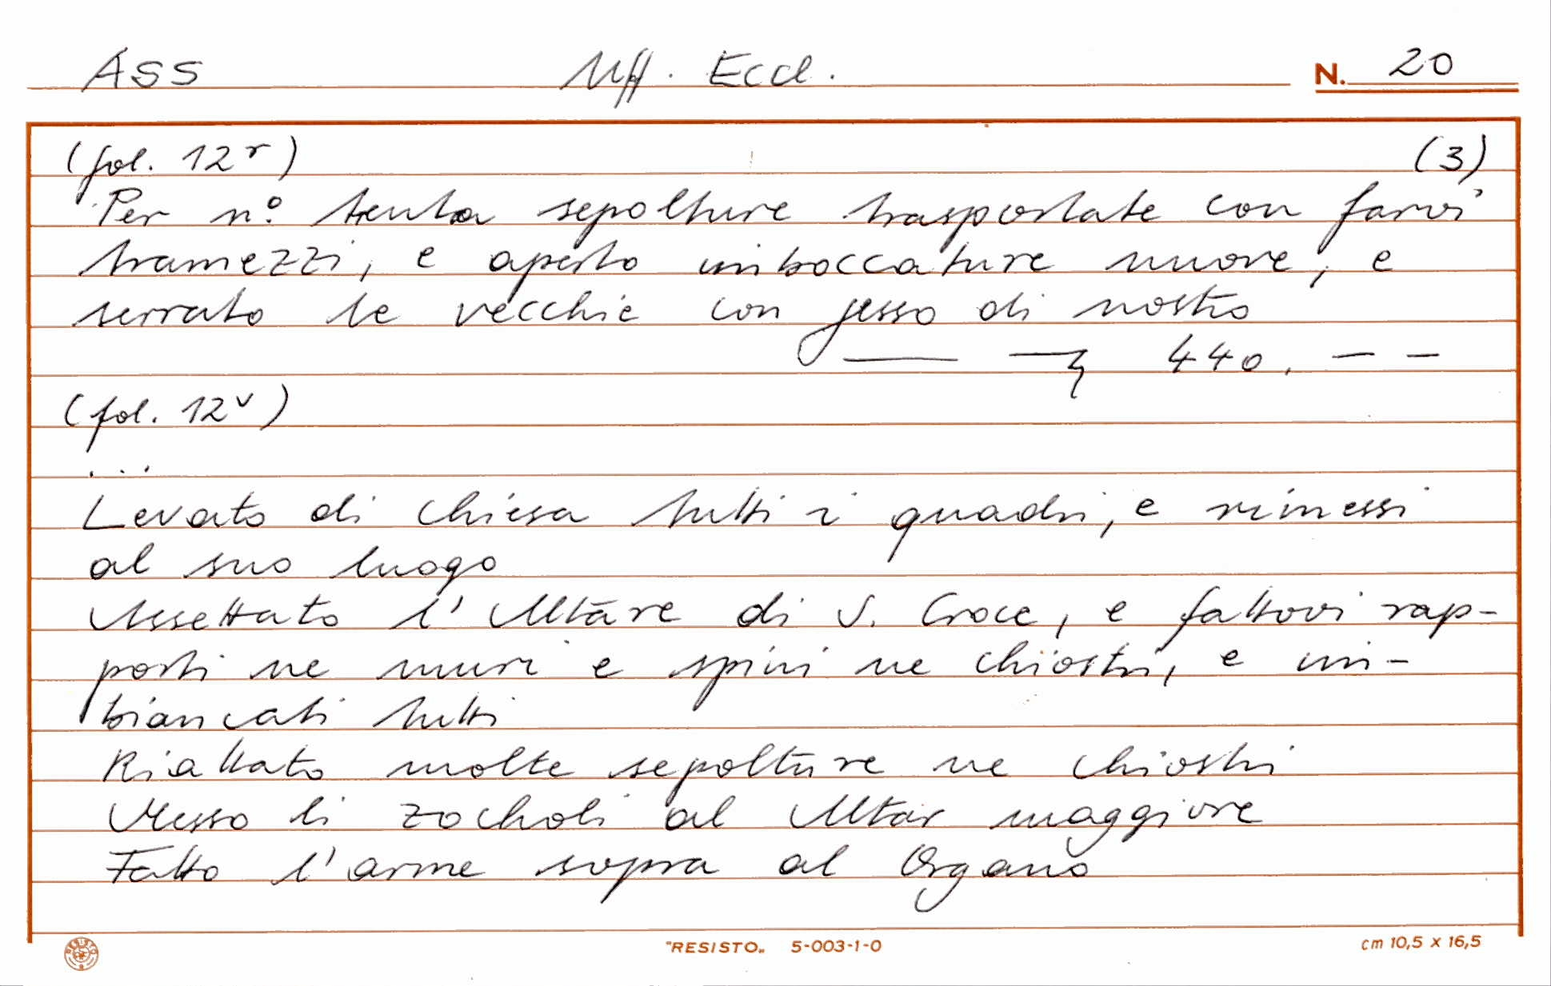 ASS Uff. Eccl. N. 20
(fol. 12r) (3)
Per n.º trenta sepolture trasportate con farvi
tramezzi, e aperto imboccature nuove, e
serrato le vecchie con gesso di nostro
440. — —
(fol. 12v)
...
Levato di chiesa tutti i quadri, e rimessi
al suo luogo
Assettato l'Altare di S. Croce, e fattovi rap-
porti ne muri e spini ne chiostri, e im-
biancati tutti
Riattato molte sepolture ne chiostri
Messo li zocholi al Altar maggiore
Fatto l'arme sopra al Organo
RESISTO
"RESISTO„ 5-003-1-0 cm 10,5 x 16,5